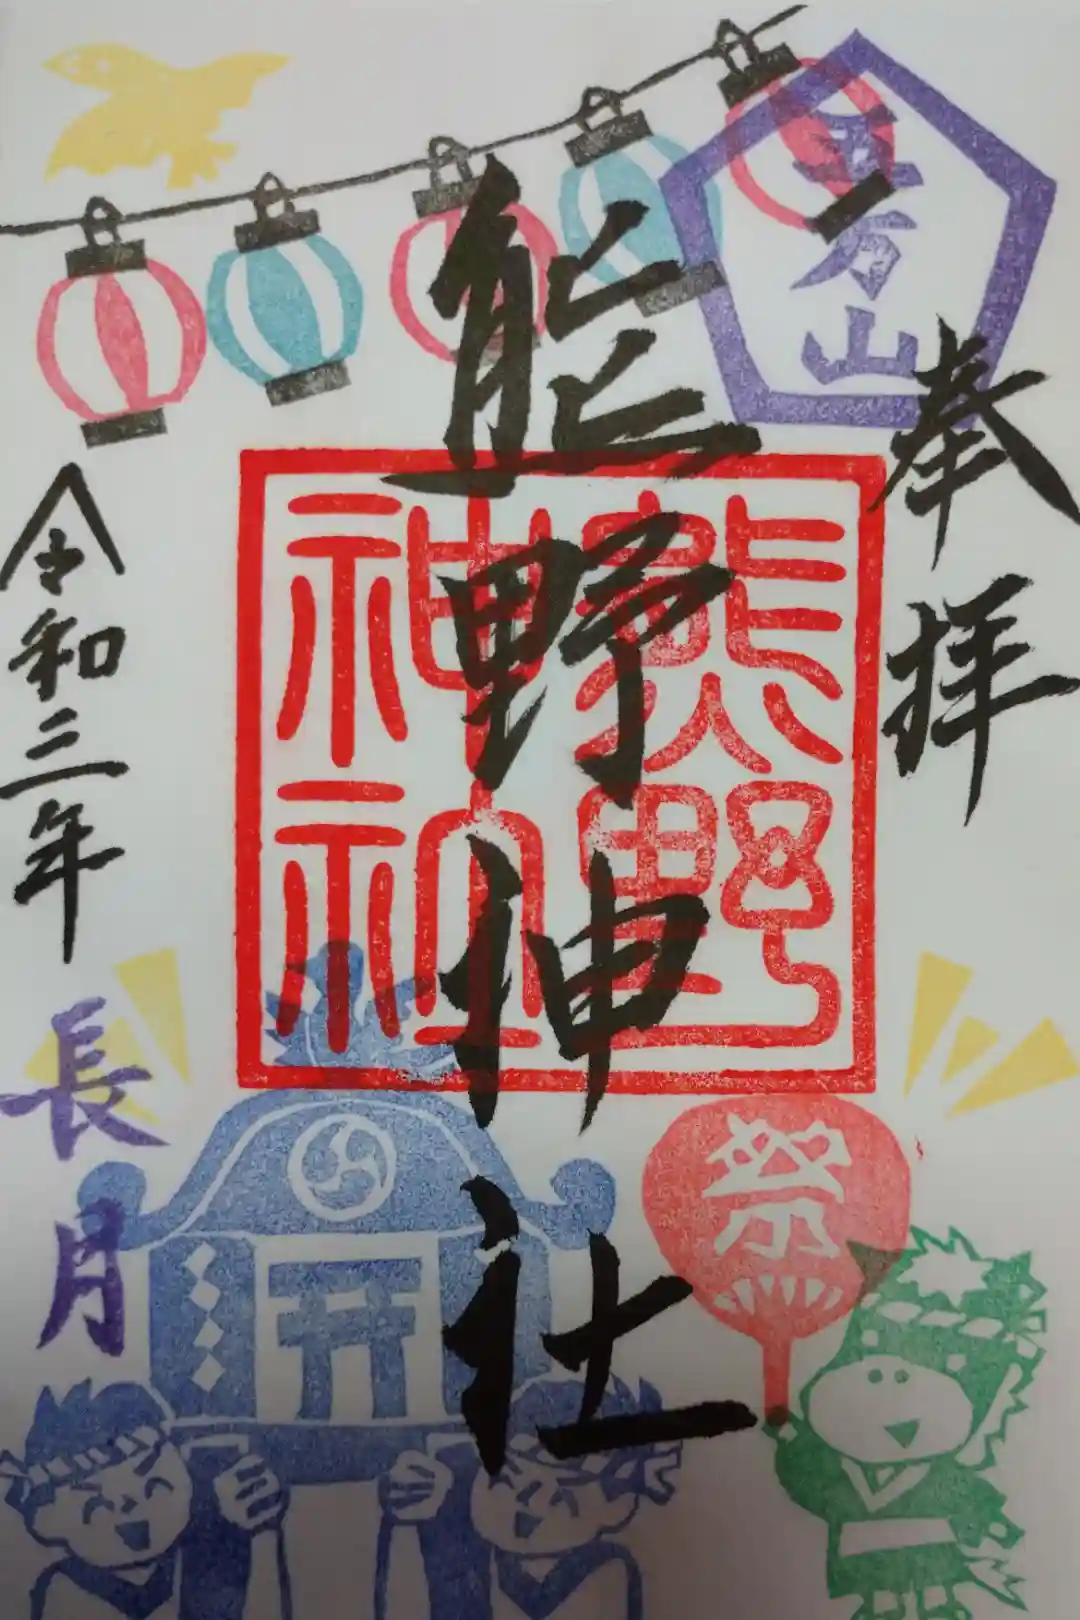 奉拝
五万山
熊野神社
熊野
神社
令和三年
長月
祭